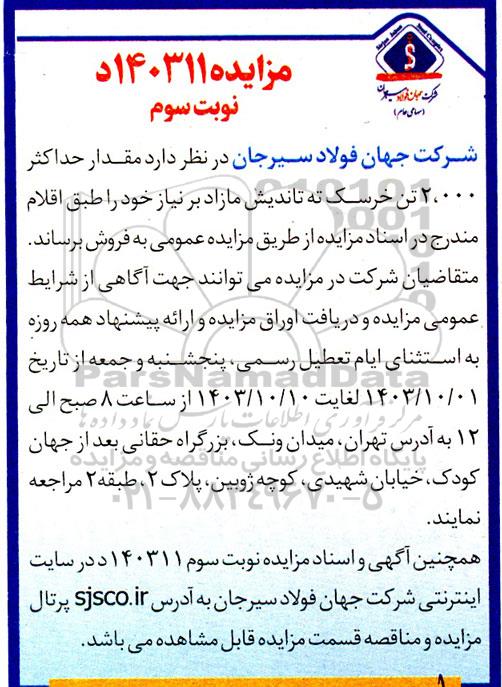 مزایده ۱۴۰۳۱۱د
نوبت سوم
شرکت جهان فولاد سیرجان
(سهامی عام)
شرکت جهان فولاد سیرجان در نظر دارد مقدار حداکثر
۲،۰۰۰ تن خرسک ته تاندیش مازاد بر نیاز خود را طبق اقلام
مندرج در اسناد مزایده از طریق مزایده عمومی به فروش برساند.
متقاضیان شرکت در مزایده می توانند جهت آگاهی از شرایط
عمومی مزایده و دریافت اوراق مزایده و ارائه پیشنهاد همه روزه
به استثنای ایام تعطیل رسمی، پنجشنبه و جمعه از تاریخ
۱۴۰۳/۱۰/۰۱ لغایت ۱۴۰۳/۱۰/۱۰ از ساعت ۸ صبح الی
۱۲ به آدرس تهران، میدان ونک، بزرگراه حقانی بعد از جهان
کودک، خیابان شهیدی، کوچه ژوبین، پلاک ۲، طبقه ۲ مراجعه
نمایند.
همچنین آگهی و اسناد مزایده نوبت سوم ۱۴۰۳۱۱د در سایت
اینترنتی شرکت جهان فولاد سیرجان به آدرس sjsco.ir پرتال
مزایده و مناقصه قسمت مزایده قابل مشاهده می باشد.
ParsNamadData
مرکز فرآوری اطلاعات پارس نماد داده ها
پایگاه اطلاع رسانی مناقصه و مزایده
۰۲۱-۸۸۳۴۹۶۷۰-۵
۸